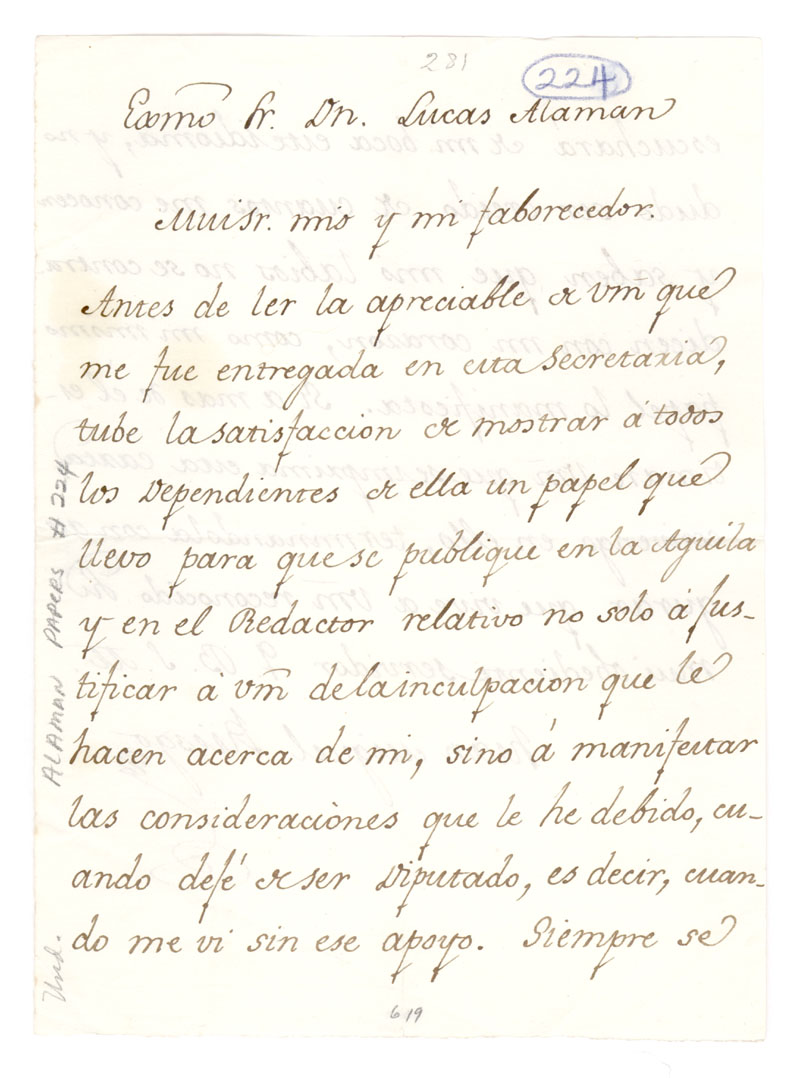 281
224
Exmo Sr. Dn. Lucas Alaman
Mui Sr. mio y mi faborecedor.
Antes de ler la apreciable de Vm que
me fue entregada en esta Secretaria,
tube la satisfaccion de mostrar á todos
los Dependientes de ella un papel que
llevo para que se publique en la Aguila
y en el Redactor relativo no solo á jus-
tificar á Vm de la inculpacion que le
hacen acerca de mi, sino á manifestar
las consideraciònes que le he debido, cu-
ando dejé de ser Diputado, es decir, cuan-
do me vi sin ese apoyo. Siempre se
619
Und. ALAMAN PAPERS # 224